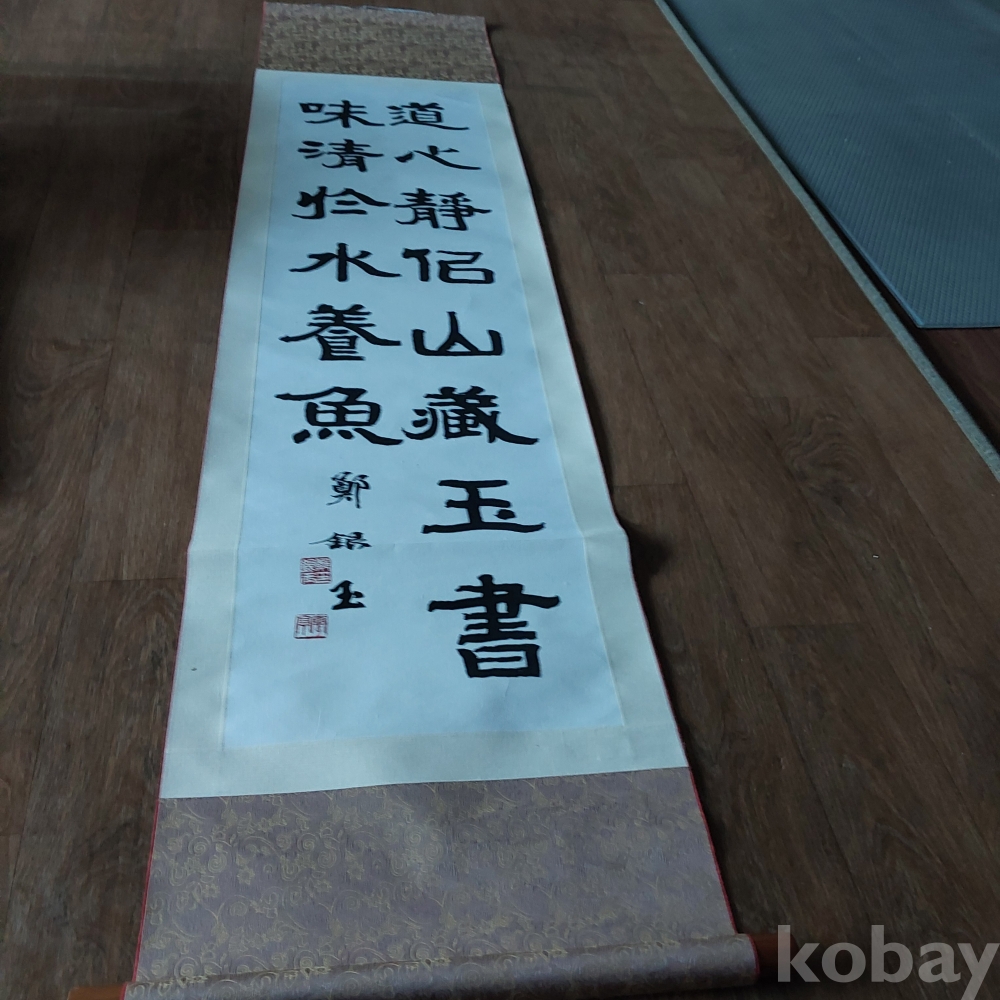 道心靜侣山藏玉書
味清於水養魚
鄭銀玉
kobay